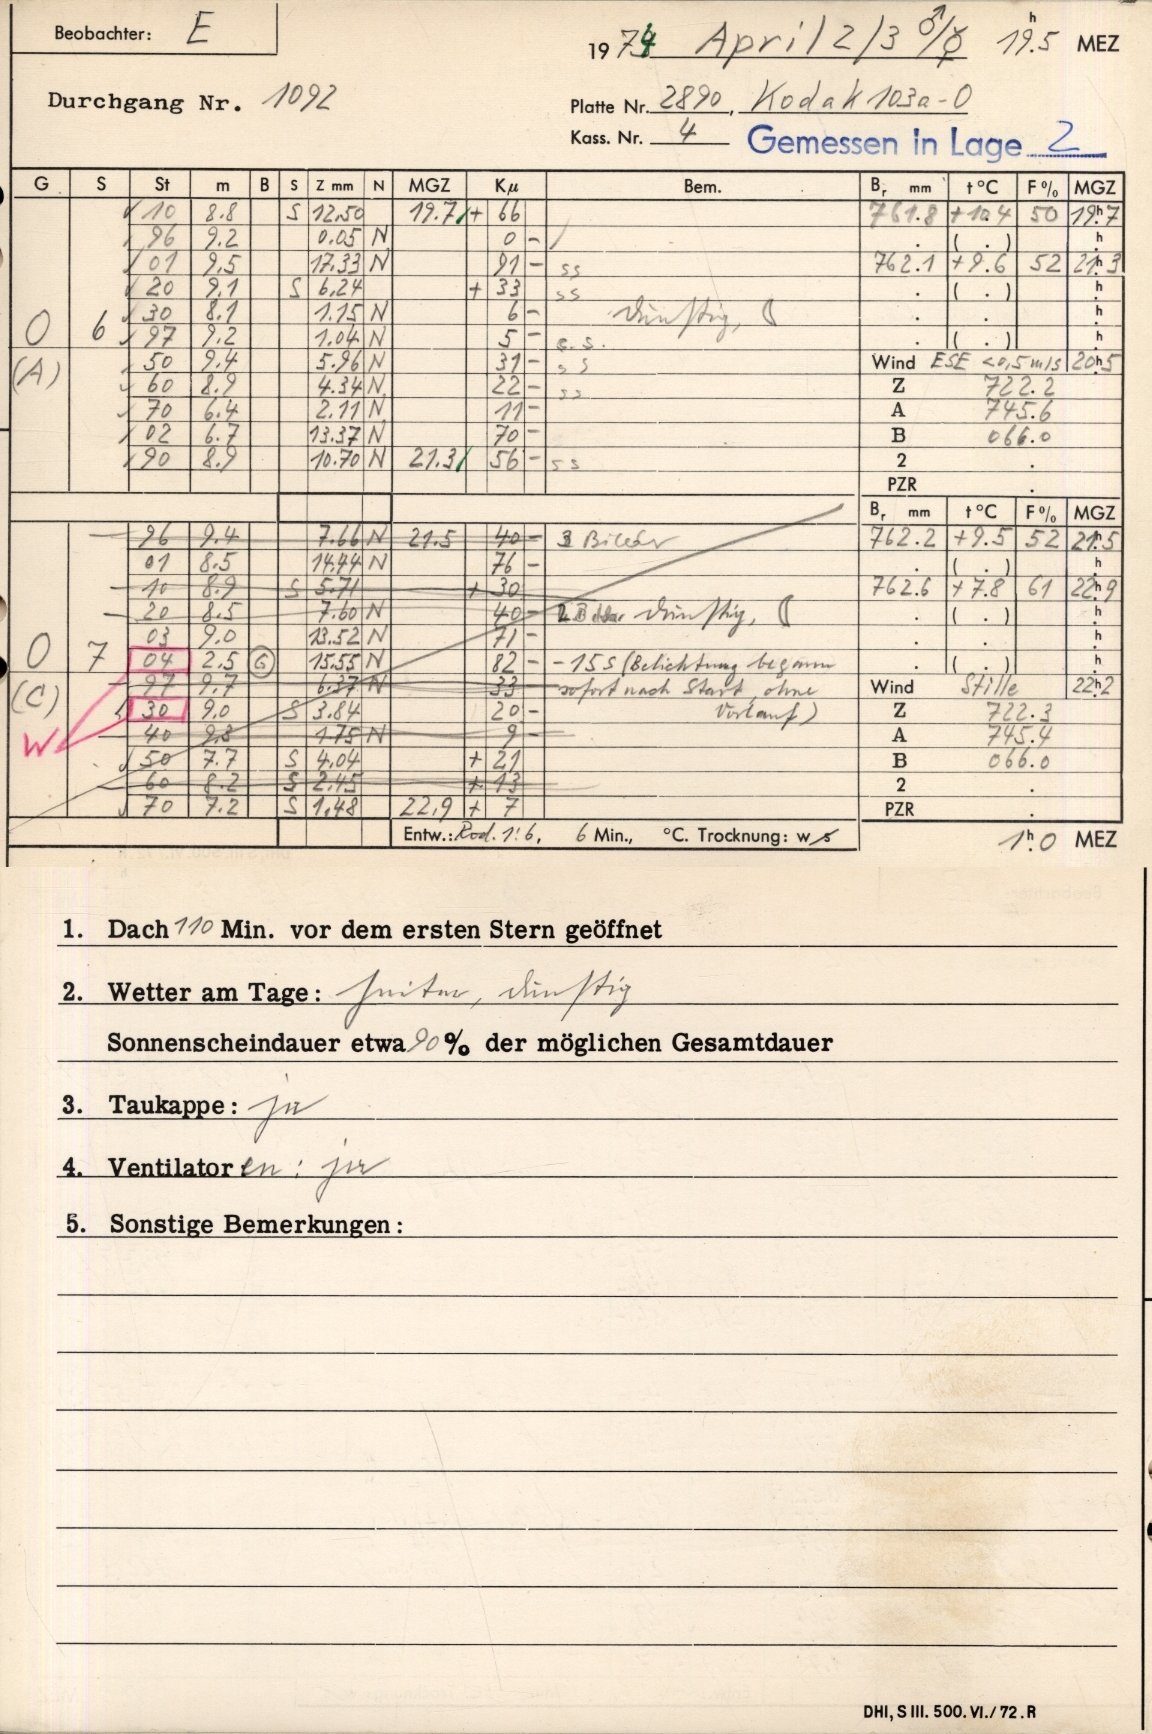 Beobachter: E
1974 April 2/3 ♂/☿ 19h.5 MEZ
Durchgang Nr. 1092
Platte Nr. 2890, Kodak 103a-O
Kass. Nr. 4 Gemessen in Lage 2
G S St m B S Z mm N MGZ Kμ Bem. Br mm t °C F % MGZ
✓ 10 8.8 S 12.50 19.7 + 66 761.8 +10.4 50 19h.7
96 9.2 0.05 N 0 - . ( . ) h.
01 9.5 17.33 N 91 - ss 762.1 +9.6 52 21h.3
20 9.1 S 6.24 + 33 ss . ( . ) h.
O 6 ✓ 30 8.1 1.15 N 6 - dunstig, ☾ . . h.
✓ 97 9.2 1.04 N 5 - s.s. . ( . ) h.
(A) 50 9.4 5.96 N 31 - ss Wind ESE <0,5 m/s 20h.5
60 8.9 4.34 N 22 - ss Z 722.2
70 6.4 2.11 N 11 - A 745.6
02 6.7 13.37 N 70 - B 066.0
90 8.9 10.70 N 21.3 56 - ss 2 .
PZR .
Br mm t °C F % MGZ
96 9.4 7.66 N 21.5 40 - 3 Bilder 762.2 +9.5 52 21h.5
01 8.5 14.44 N 76 - . ( . ) h.
10 8.9 S 5.71 + 30 762.6 +7.8 61 22h.9
20 8.5 7.60 N 40 - dunstig, ☾ . ( . ) h.
03 9.0 13.52 N 71 - . . h.
O 7 04 2.5 G 15.55 N 82 - -15s (Belichtung begann . ( . ) h.
(C) 97 9.7 6.37 N 33 - sofort nach Start, ohne Wind Stille 22h.2
✓ 30 9.0 S 3.84 20 - Vorlauf) Z 722.3
W 40 9.3 1.75 N 9 - A 745.4
✓ 50 7.7 S 4.04 + 21 B 066.0
60 8.2 S 2.45 + 13 2 .
✓ 70 7.2 S 1.48 22.9 + 7 PZR .
Entw.: Rod. 1:6, 6 Min., °C. Trocknung: w s 1h.0 MEZ
1. Dach 110 Min. vor dem ersten Stern geöffnet
2. Wetter am Tage: heiter, dunstig
Sonnenscheindauer etwa 90% der möglichen Gesamtdauer
3. Taukappe: ja
4. Ventilatoren: ja
5. Sonstige Bemerkungen:
DHI, S III. 500. VI./72. R